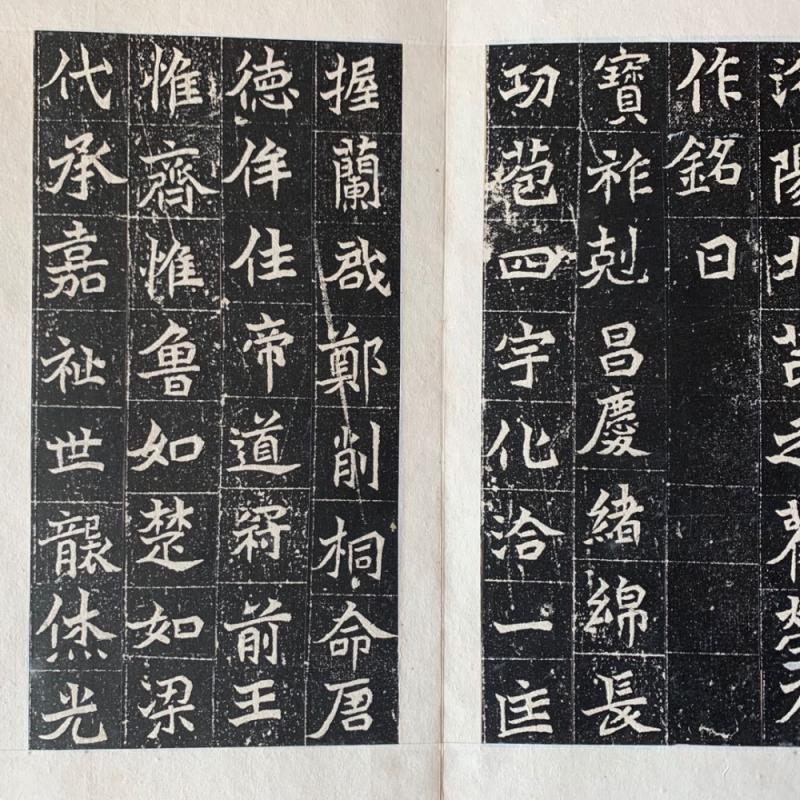 陽北之
作銘曰
寶祚剋昌慶緒綿長
功苞四宇化洽一匡
握蘭啟鄭削桐命唐
德侔往帝道冠前王
惟齊惟魯如楚如梁
代承嘉祉世襲烋光